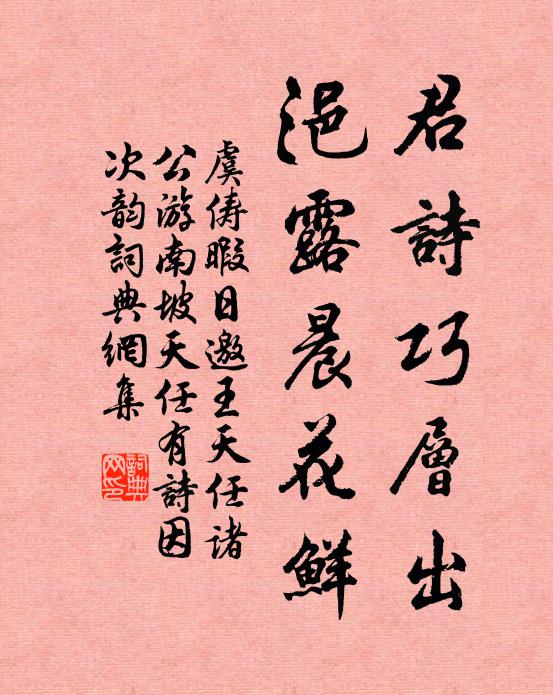 君詩巧層出
浥露晨花鮮
虞儔暇日邀王天任諸
公游南坡天任有詩因
次韵詞典網集
詞典网印